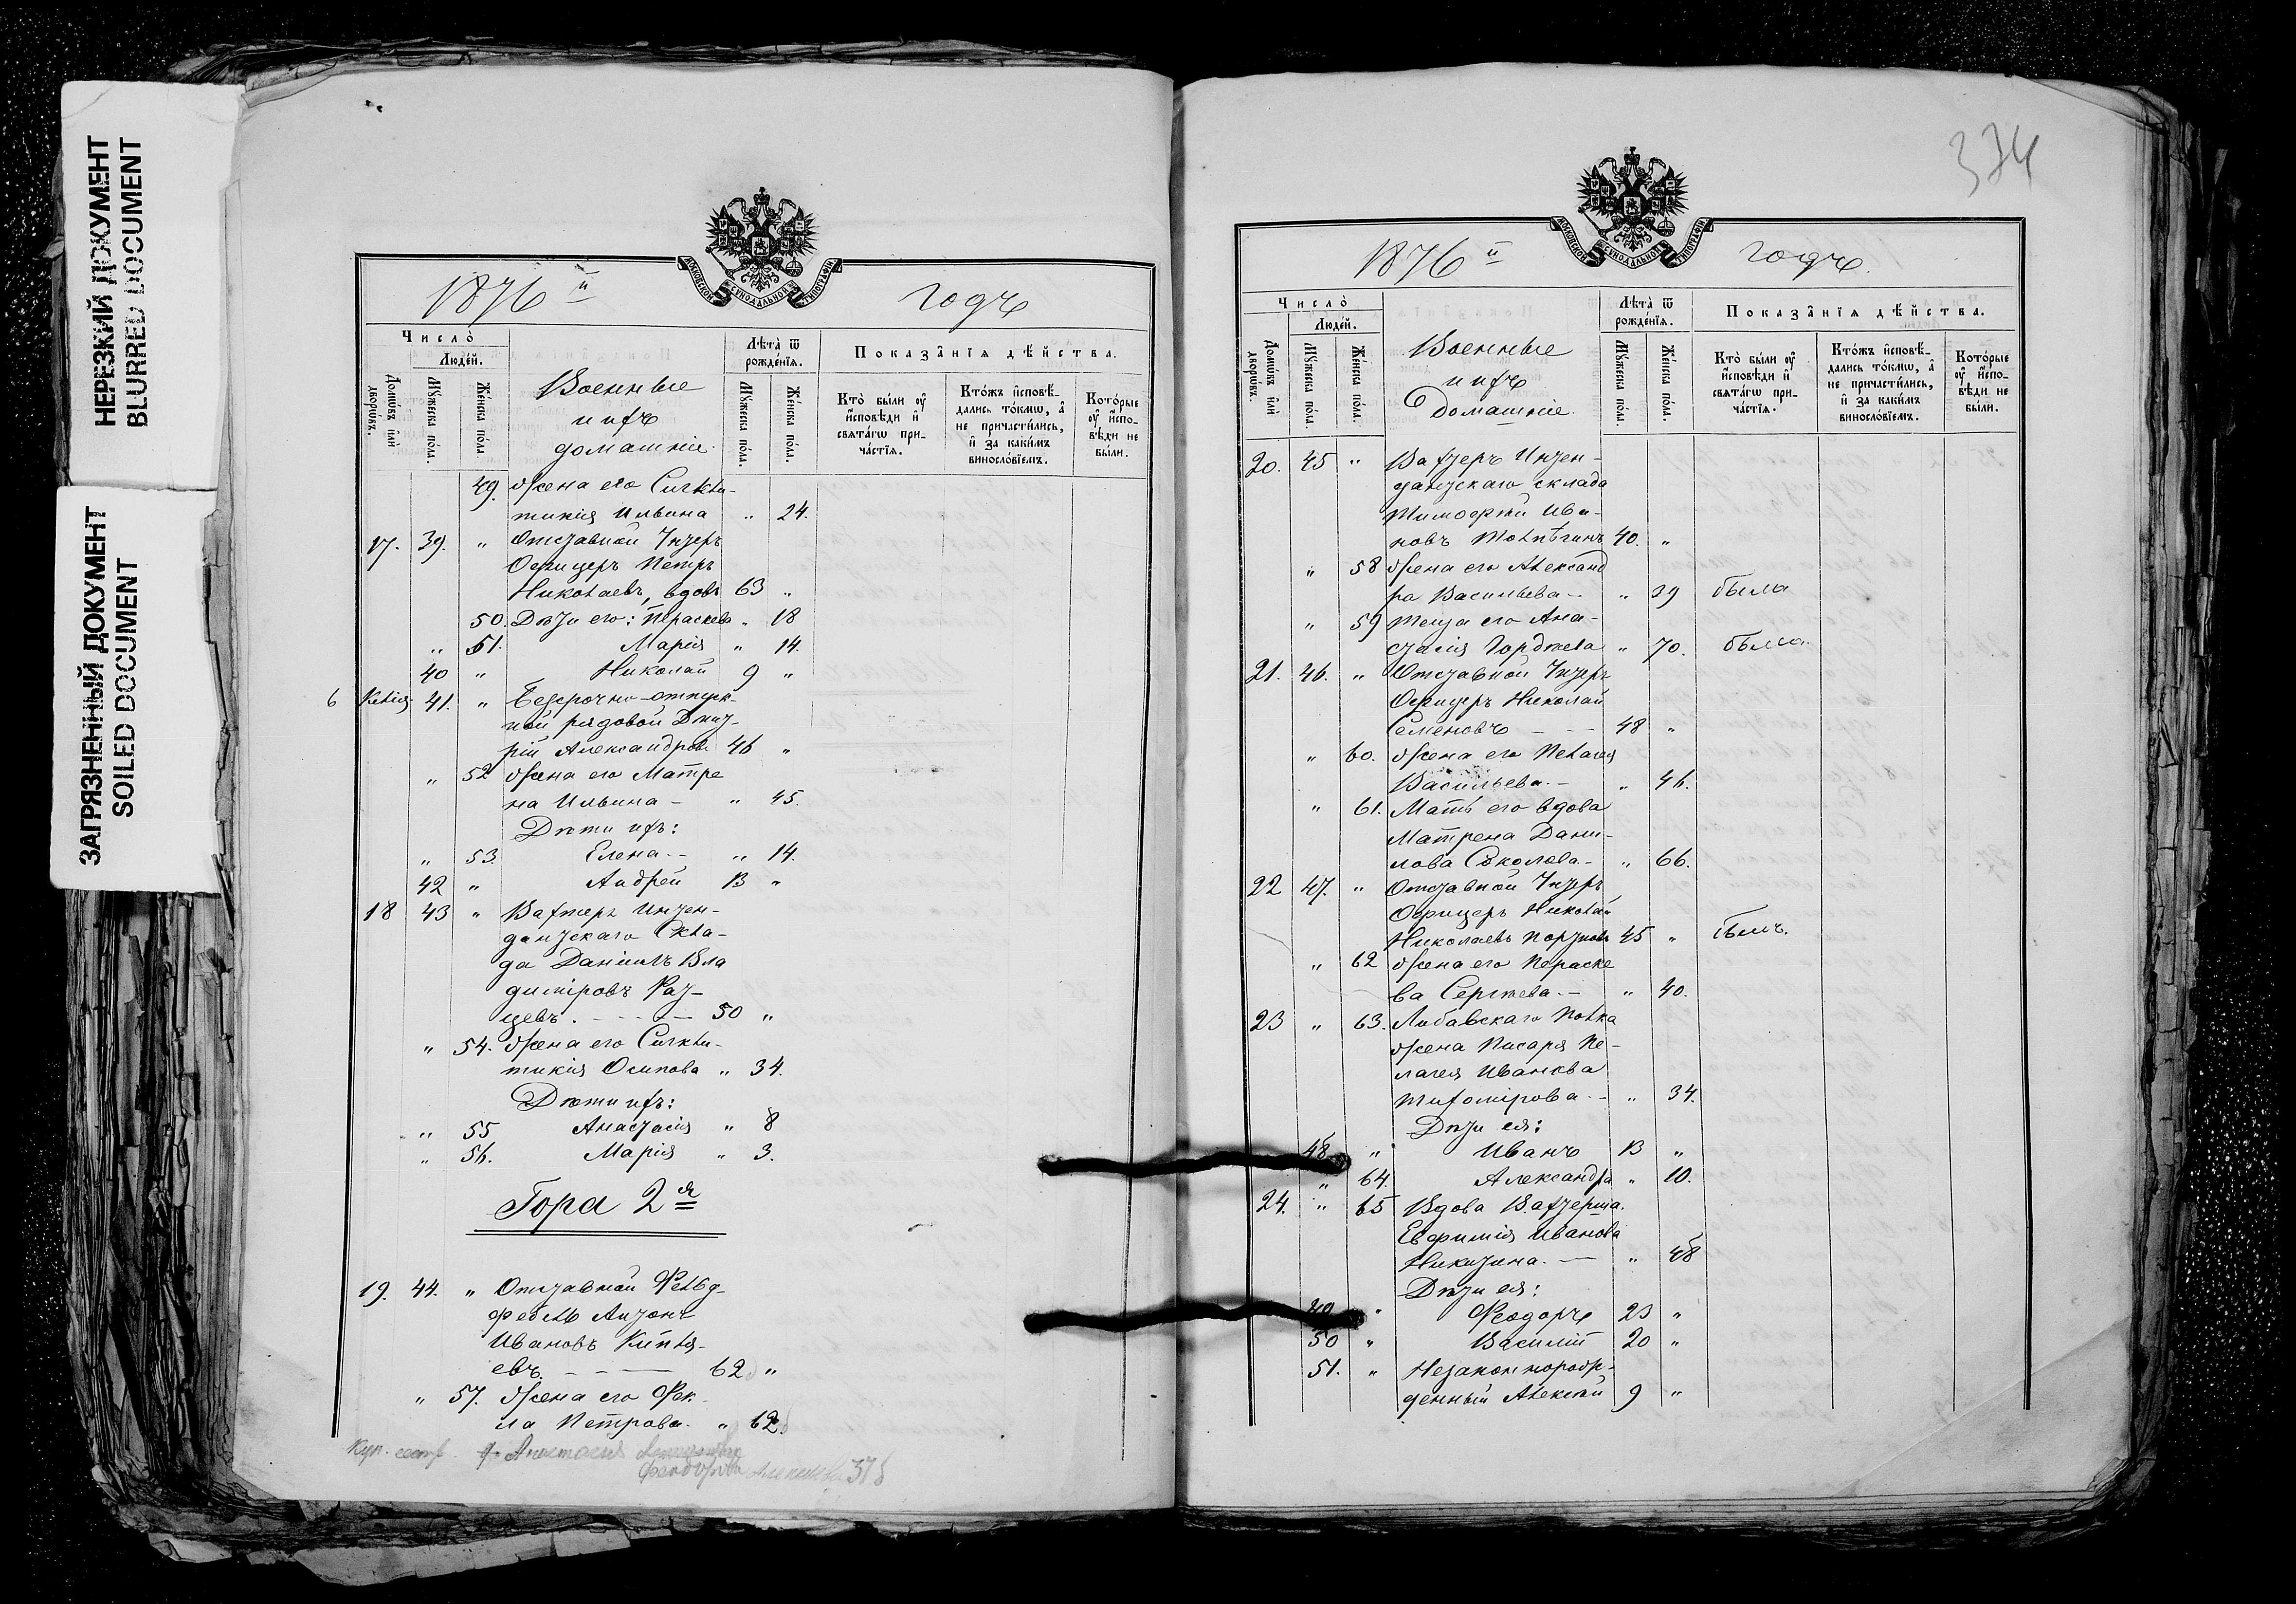 НЕРЕЗКИЙ ДОКУМЕНТ
BLURRED DOCUMENT
ЗАГРЯЗНЕННЫЙ ДОКУМЕНТ
SOILED DOCUMENT
МОСКОВСКОЙ СѴНОДАЛЬНОЙ ТИПОГРАФІИ
1876 й годъ
Число̀
Люде́й.
Домѡ́въ и҆лѝ дворѡ́въ.
Мꙋ́жеска по́ла.
Же́нска по́ла.
Военные
и ихъ
домашніе.
Лѣ́та ѿ рожде́нїѧ.
Мꙋ́жеска по́ла.
Же́нска по́ла.
Показа̑нїѧ дѣ́йства.
Кто̀ бы́ли ᲂу҆ и҆сповѣ́ди и҆ свѧта́гѡ прича́стїѧ.
Кто́жъ и҆сповѣ́дались то́кмѡ, а҆ не причасти́лись, и҆ за каки́мъ виносло́вїемъ.
Кото́рые ᲂу҆ и҆сповѣ́ди не бы́ли.
49. Жена его Сигкли-
тикія Ильина " 24.
17. 39. " Отставной Унтеръ
Офицеръ Петръ
Николаевъ, вдовъ 63 "
50. Дѣти его: Параскева " 18
" 51. Марія " 14.
40 " Николай 9 "
6 Келія 41. " Безсрочно-отпуск-
ной рядовой Дмит-
рій Александровъ 46 "
" 52 Жена его Матре
на Ильина - " 45.
Дѣти ихъ:
" 53. Елена - " 14.
42 " Андрей 13 "
18 43 " Вахтеръ Интен-
дантскаго Скла-
да Даніилъ Вла
диміровъ Каз-
цевъ. - - - - 50 "
" 54. Жена его Сигкли-
тикія Осипова " 34.
Дѣти ихъ:
" 55 Анастасія " 8
" 56. Марія " 3.
Гора 2я
19. 44. " Отставной Фельд-
фебель Антонъ
Ивановъ Кипья-
евъ. - - - 62 "
" 57. Жена его Фек-
ла Петрова. " 62
Куп. сестр. Анастасія
374
МОСКОВСКОЙ СѴНОДАЛЬНОЙ ТИПОГРАФІИ
1876 й годъ.
Число̀
Люде́й.
Домѡ́въ и҆лѝ дворѡ́въ.
Мꙋ́жеска по́ла.
Же́нска по́ла.
Военные
и ихъ
Домашніе.
Лѣ́та ѿ рожде́нїѧ.
Мꙋ́жеска по́ла.
Же́нска по́ла.
Показа̑нїѧ дѣ́йства.
Кто̀ бы́ли ᲂу҆ и҆сповѣ́ди и҆ свѧта́гѡ прича́стїѧ.
Кто́жъ и҆сповѣ́дались то́кмѡ, а҆ не причасти́лись, и҆ за каки́мъ виносло́вїемъ.
Кото́рые ᲂу҆ и҆сповѣ́ди не бы́ли.
20. 45 " Вахтеръ Интен-
дантскаго склада
Тимофей Ива-
новъ Топѣгинъ 40. "
" 58 Жена его Александ
ра Васильева - " 39 была
" 59 Теща его Ана-
стасія Гордѣева " 70. была.
21. 46. " Отставной Унтеръ
Офицеръ Николай
Семеновъ - - 48 "
" 60. Жена его Пелагея
Васильева. - " 46.
" 61. Мать его вдова
Матрена Дани-
лова Соколова - " 66.
22 47. " Отставной Унтеръ
Офицеръ Николай
Николаевъ Портновъ 45 " былъ.
" 62 Жена его Параске
ва Сергѣева. - " 40.
23 " 63. Либавскаго Полка
Жена Писаря Пе-
лагея Иванова
Тихомірова. - " 34.
Дѣти ея:
48 " Иванъ 13 "
" 64. Александра " 10.
24. " 65 Вдова Вахтерша.
Евфимія Иванова
Никитина. - " 48
Дѣти ея:
49 " Феодоръ 23 "
50 " Василій 20 "
51. " Незаконнорож-
денный Алексѣй 9 "